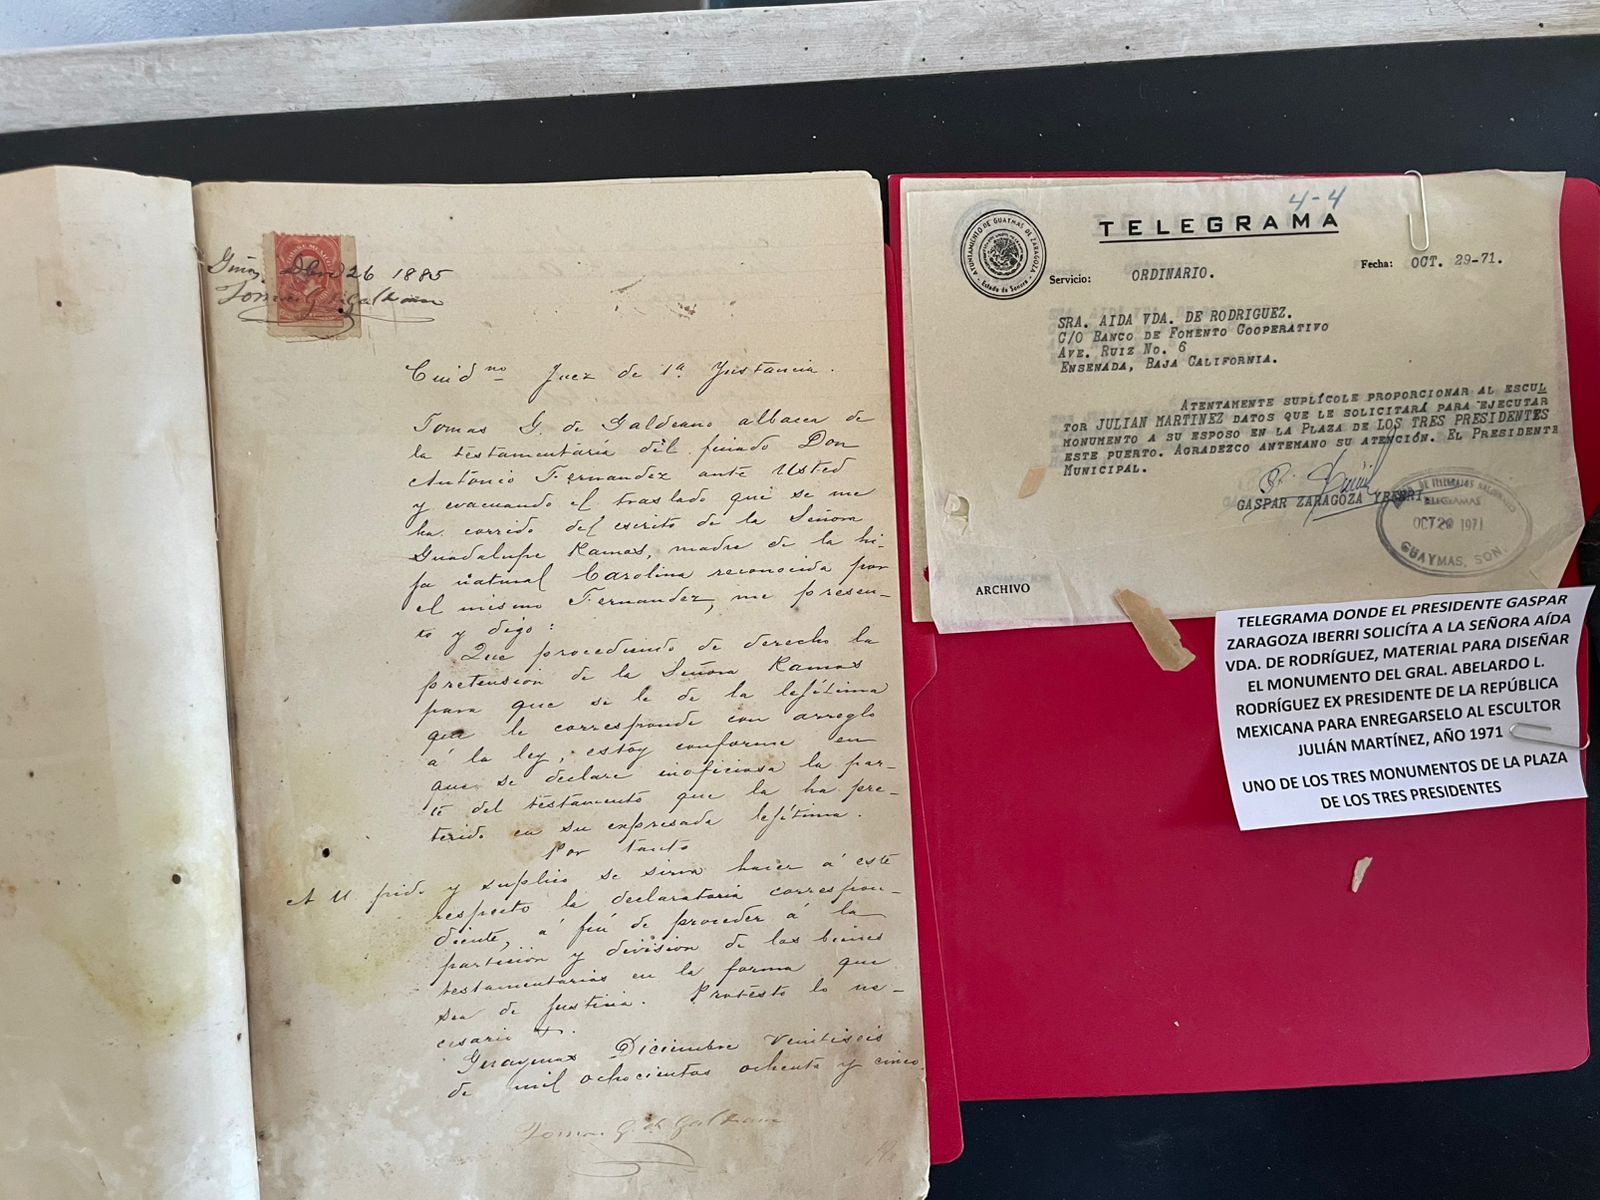 Gmas Dbre 26 1885
Tomas G. de Galdeano
Ciud no Juez de 1a Ynstancia.
Tomas G. de Galdeano albacea de
la testamentaria del finado Don
Antonio Fernandez ante Usted
y evacuando el traslado que se me
ha corrido del escrito de la Señora
Guadalupe Ramas, madre de la hi-
ja natural Carolina reconocida por
el mismo Fernandez, me presen-
to y digo:
Que procediendo de derecho la
pretension de la Señora Ramas
para que se le de la lejítima
que le corresponde con arreglo
á la ley, estoy conforme en
que se declare inoficiosa la par-
te del testamento que la ha pre-
terido en su expresada lejítima.
Por tanto
A U. pido y suplico se sirva hacer á este
respecto la declaratoria correspon-
diente, á fin de proceder á la
particion y division de los bienes
testamentarios en la forma que
sea de justicia. Protesto lo ne-
cesario
Guaymas Diciembre Veintiseis
de mil ochocientos ochenta y cinco.
Tomas G. de Galdeano
4-4
TELEGRAMA
AYUNTAMIENTO DE GUAYMAS DE ZARAGOZA
Estado de Sonora
Servicio: ORDINARIO.
Fecha: OCT. 29-71.
SRA. AIDA VDA. DE RODRIGUEZ.
C/O BANCO DE FOMENTO COOPERATIVO
AVE. RUIZ NO. 6
ENSENADA, BAJA CALIFORNIA.
ATENTAMENTE SUPLÍCOLE PROPORCIONAR AL ESCUL
TOR JULIAN MARTINEZ DATOS QUE LE SOLICITARÁ PARA EJECUTAR
MONUMENTO A SU ESPOSO EN LA PLAZA DE LOS TRES PRESIDENTES
ESTE PUERTO. AGRADEZCO ANTEMANO SU ATENCIÓN. EL PRESIDENTE
MUNICIPAL.
GASPAR ZARAGOZA YBERRI.
DE TELEGRAFOS NACIONALES
TELEGRAMAS
OCT 29 1971
GUAYMAS, SON.
ARCHIVO
TELEGRAMA DONDE EL PRESIDENTE GASPAR
ZARAGOZA IBERRI SOLICÍTA A LA SEÑORA AÍDA
VDA. DE RODRÍGUEZ, MATERIAL PARA DISEÑAR
EL MONUMENTO DEL GRAL. ABELARDO L.
RODRÍGUEZ EX PRESIDENTE DE LA REPÚBLICA
MEXICANA PARA ENREGARSELO AL ESCULTOR
JULIÁN MARTÍNEZ, AÑO 1971
UNO DE LOS TRES MONUMENTOS DE LA PLAZA
DE LOS TRES PRESIDENTES